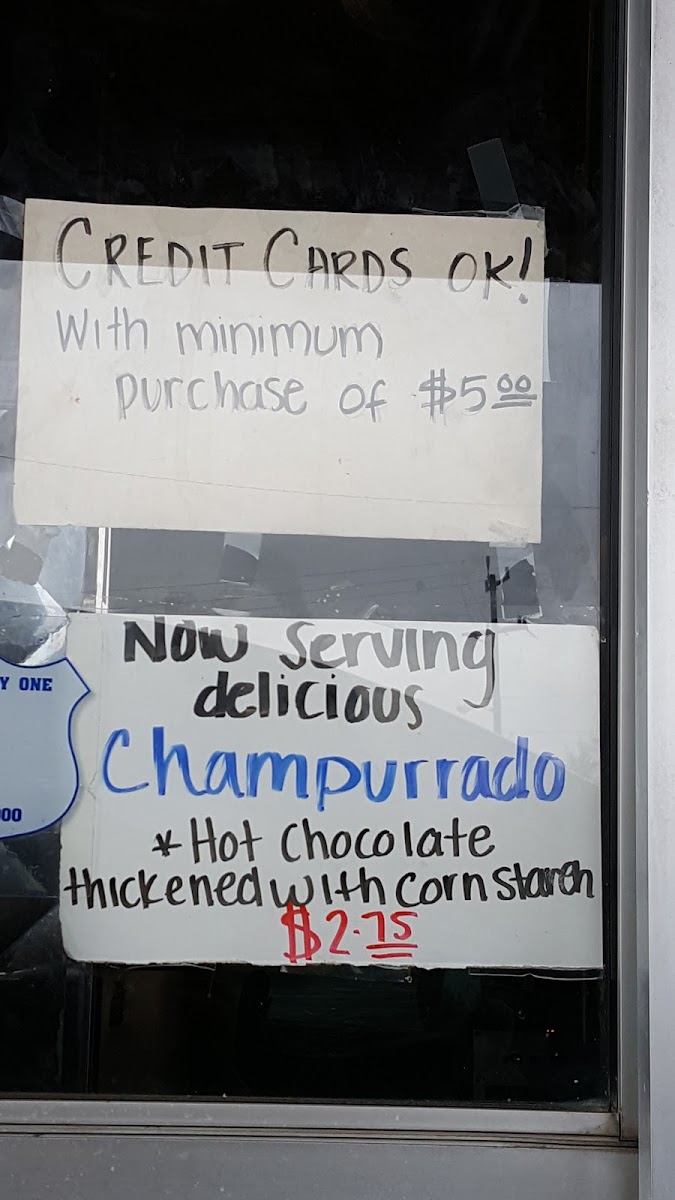 CREDIT CARDS OK!
With minimum
purchase of $5.00
Now Serving
delicious
Champurrado
*Hot Chocolate
thickened with corn starch
$2.75
Y ONE
00